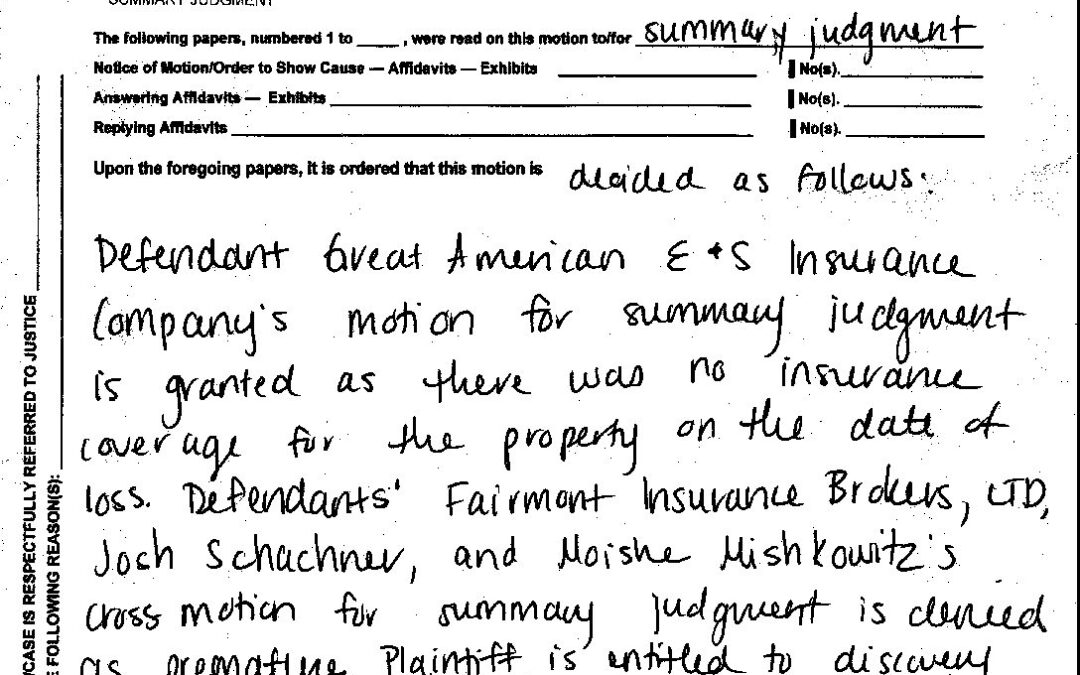 SUMMARY JUDGMENT
The following papers, numbered 1 to ____ , were read on this motion to/for summary judgment
Notice of Motion/Order to Show Cause — Affidavits — Exhibits ____ No(s). ____
Answering Affidavits — Exhibits ____ No(s). ____
Replying Affidavits ____ No(s). ____
Upon the foregoing papers, it is ordered that this motion is decided as follows:
Defendant Great American E + S Insurance
Company's motion for summary judgment
is granted as there was no insurance
coverage for the property on the date of
loss. Defendants' Fairmont Insurance Brokers, LTD,
Josh Schachner, and Moishe Mishkowitz's
cross motion for summary judgment is denied
as premature. Plaintiff is entitled to discovery
CASE IS RESPECTFULLY REFERRED TO JUSTICE
FOLLOWING REASON(S):